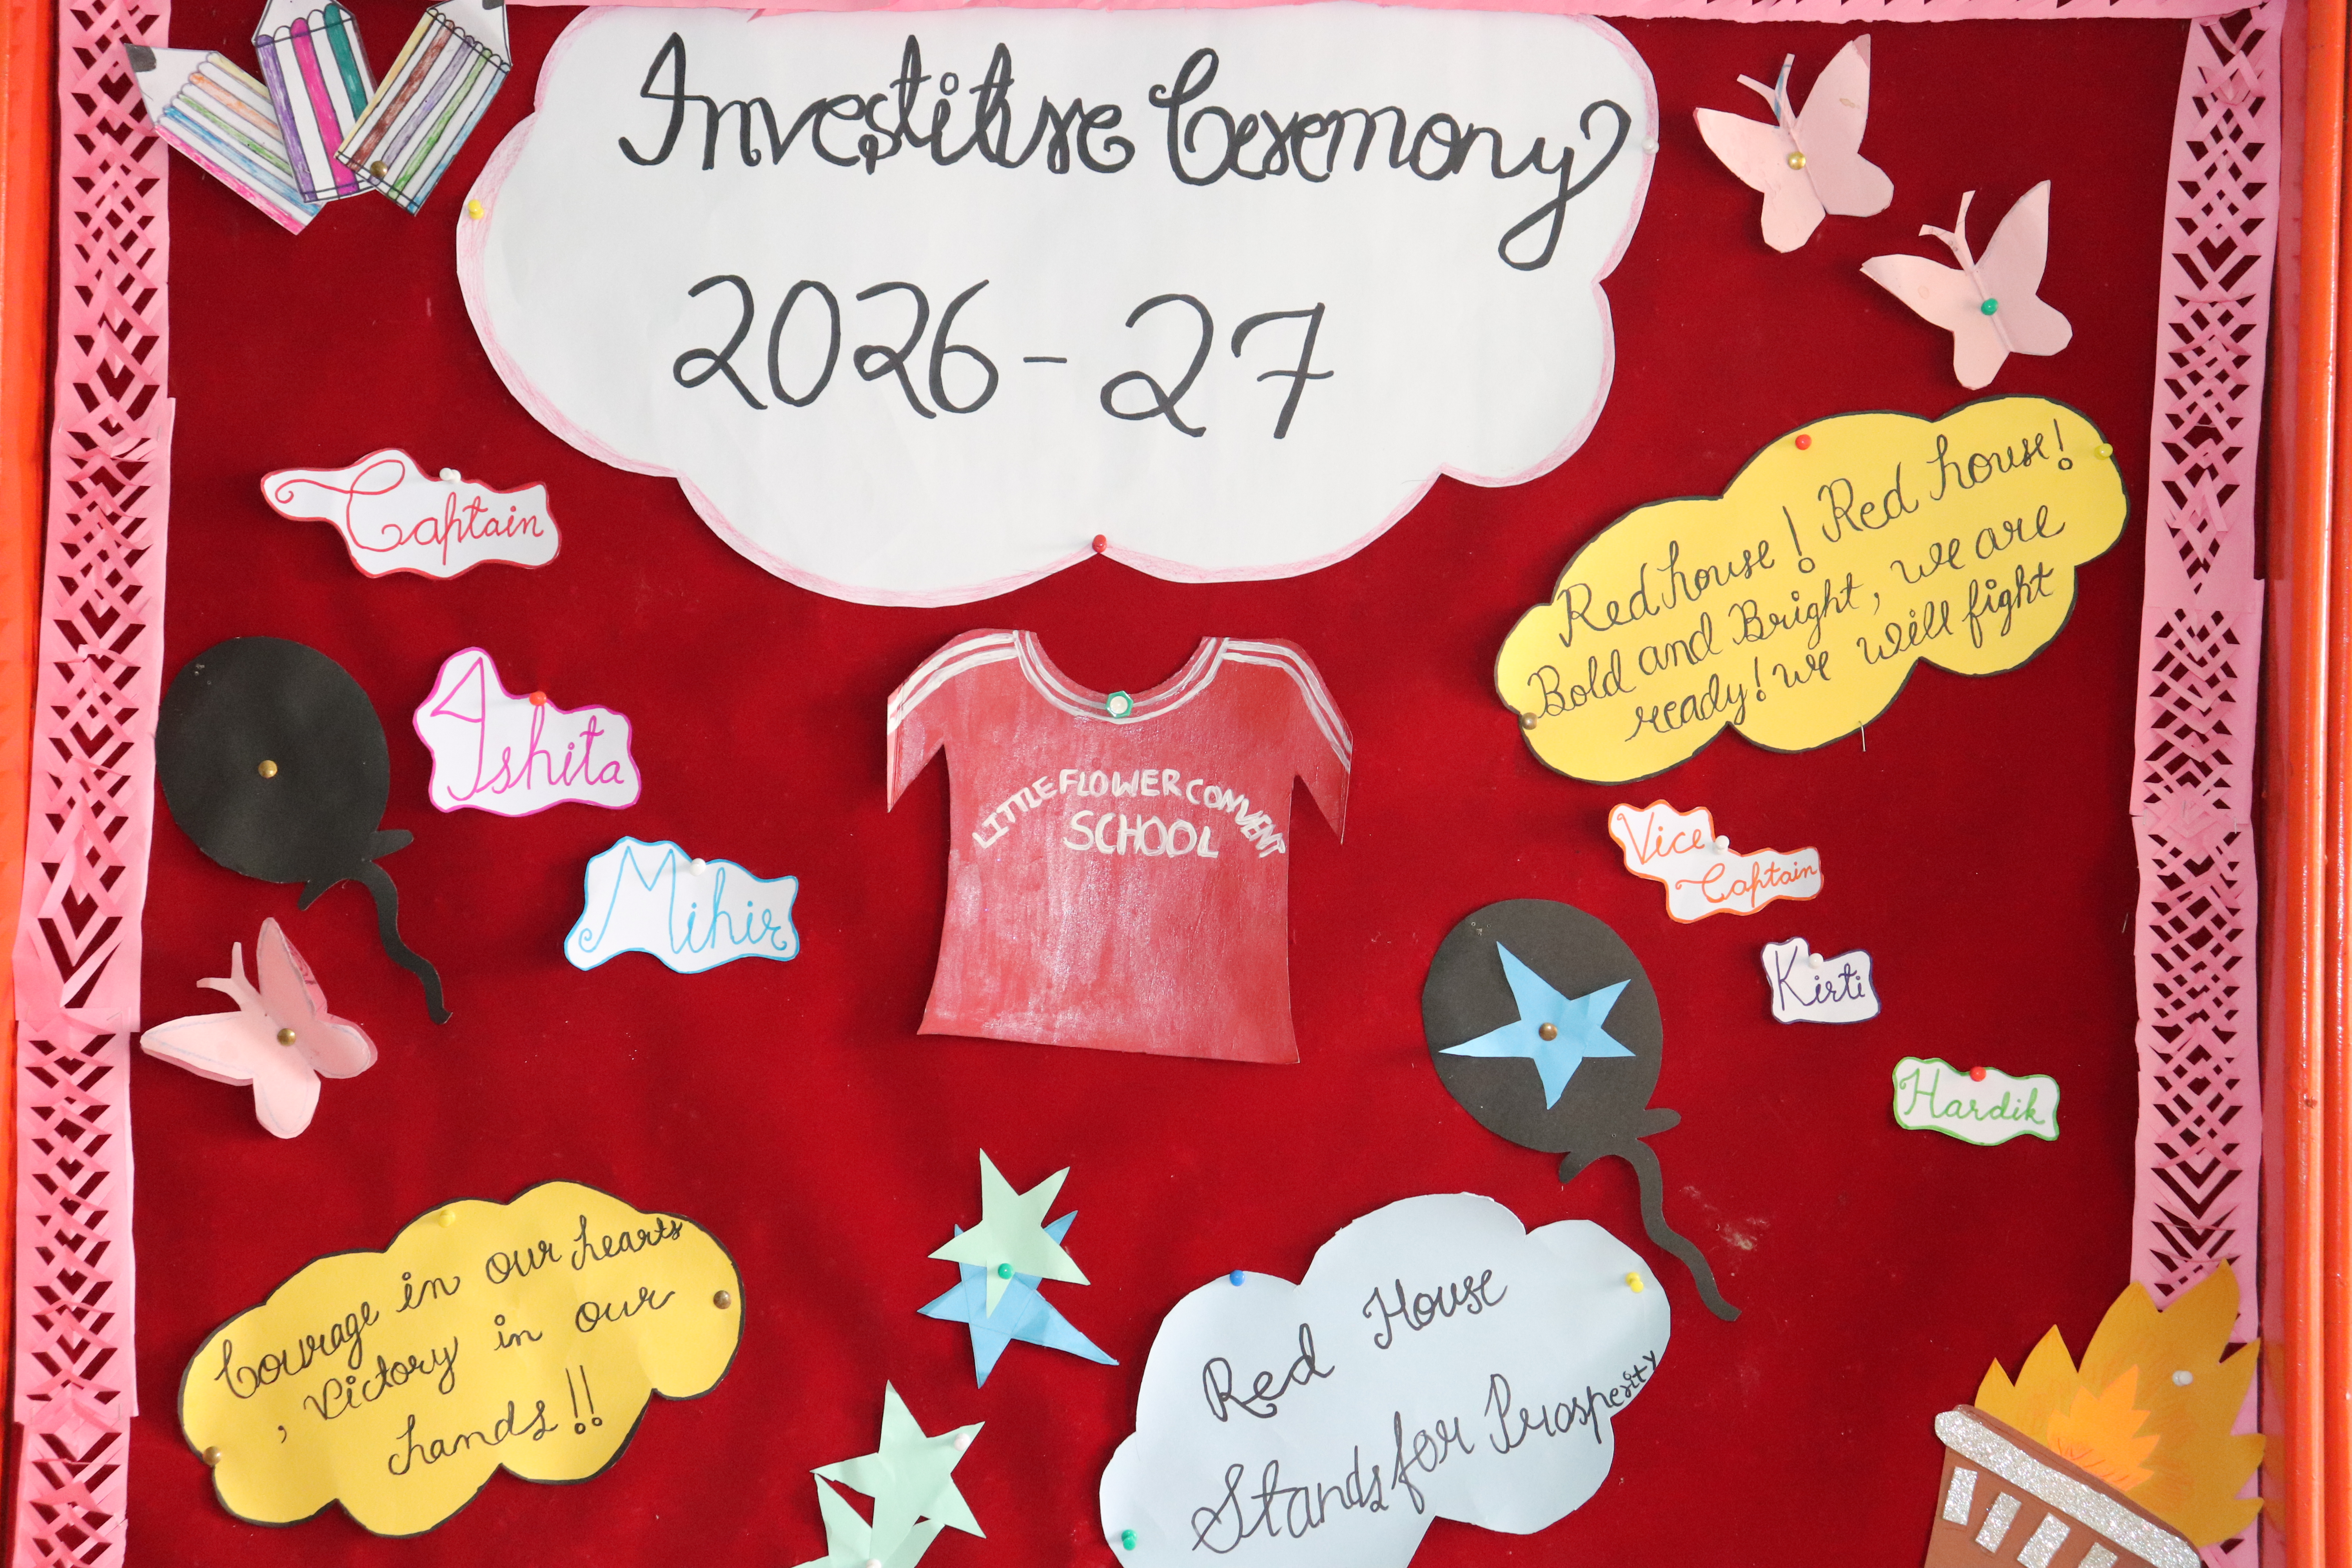 Investiture Ceremony
2026-27
Captain
Ishita
Mihir
LITTLE FLOWER CONVENT
SCHOOL
Red house! Red house!
Bold and Bright, we are
ready! we will fight
Vice
Captain
Kirti
Hardik
Courage in our hearts
, Victory in our
hands!!
Red House
Stands for Prosperity